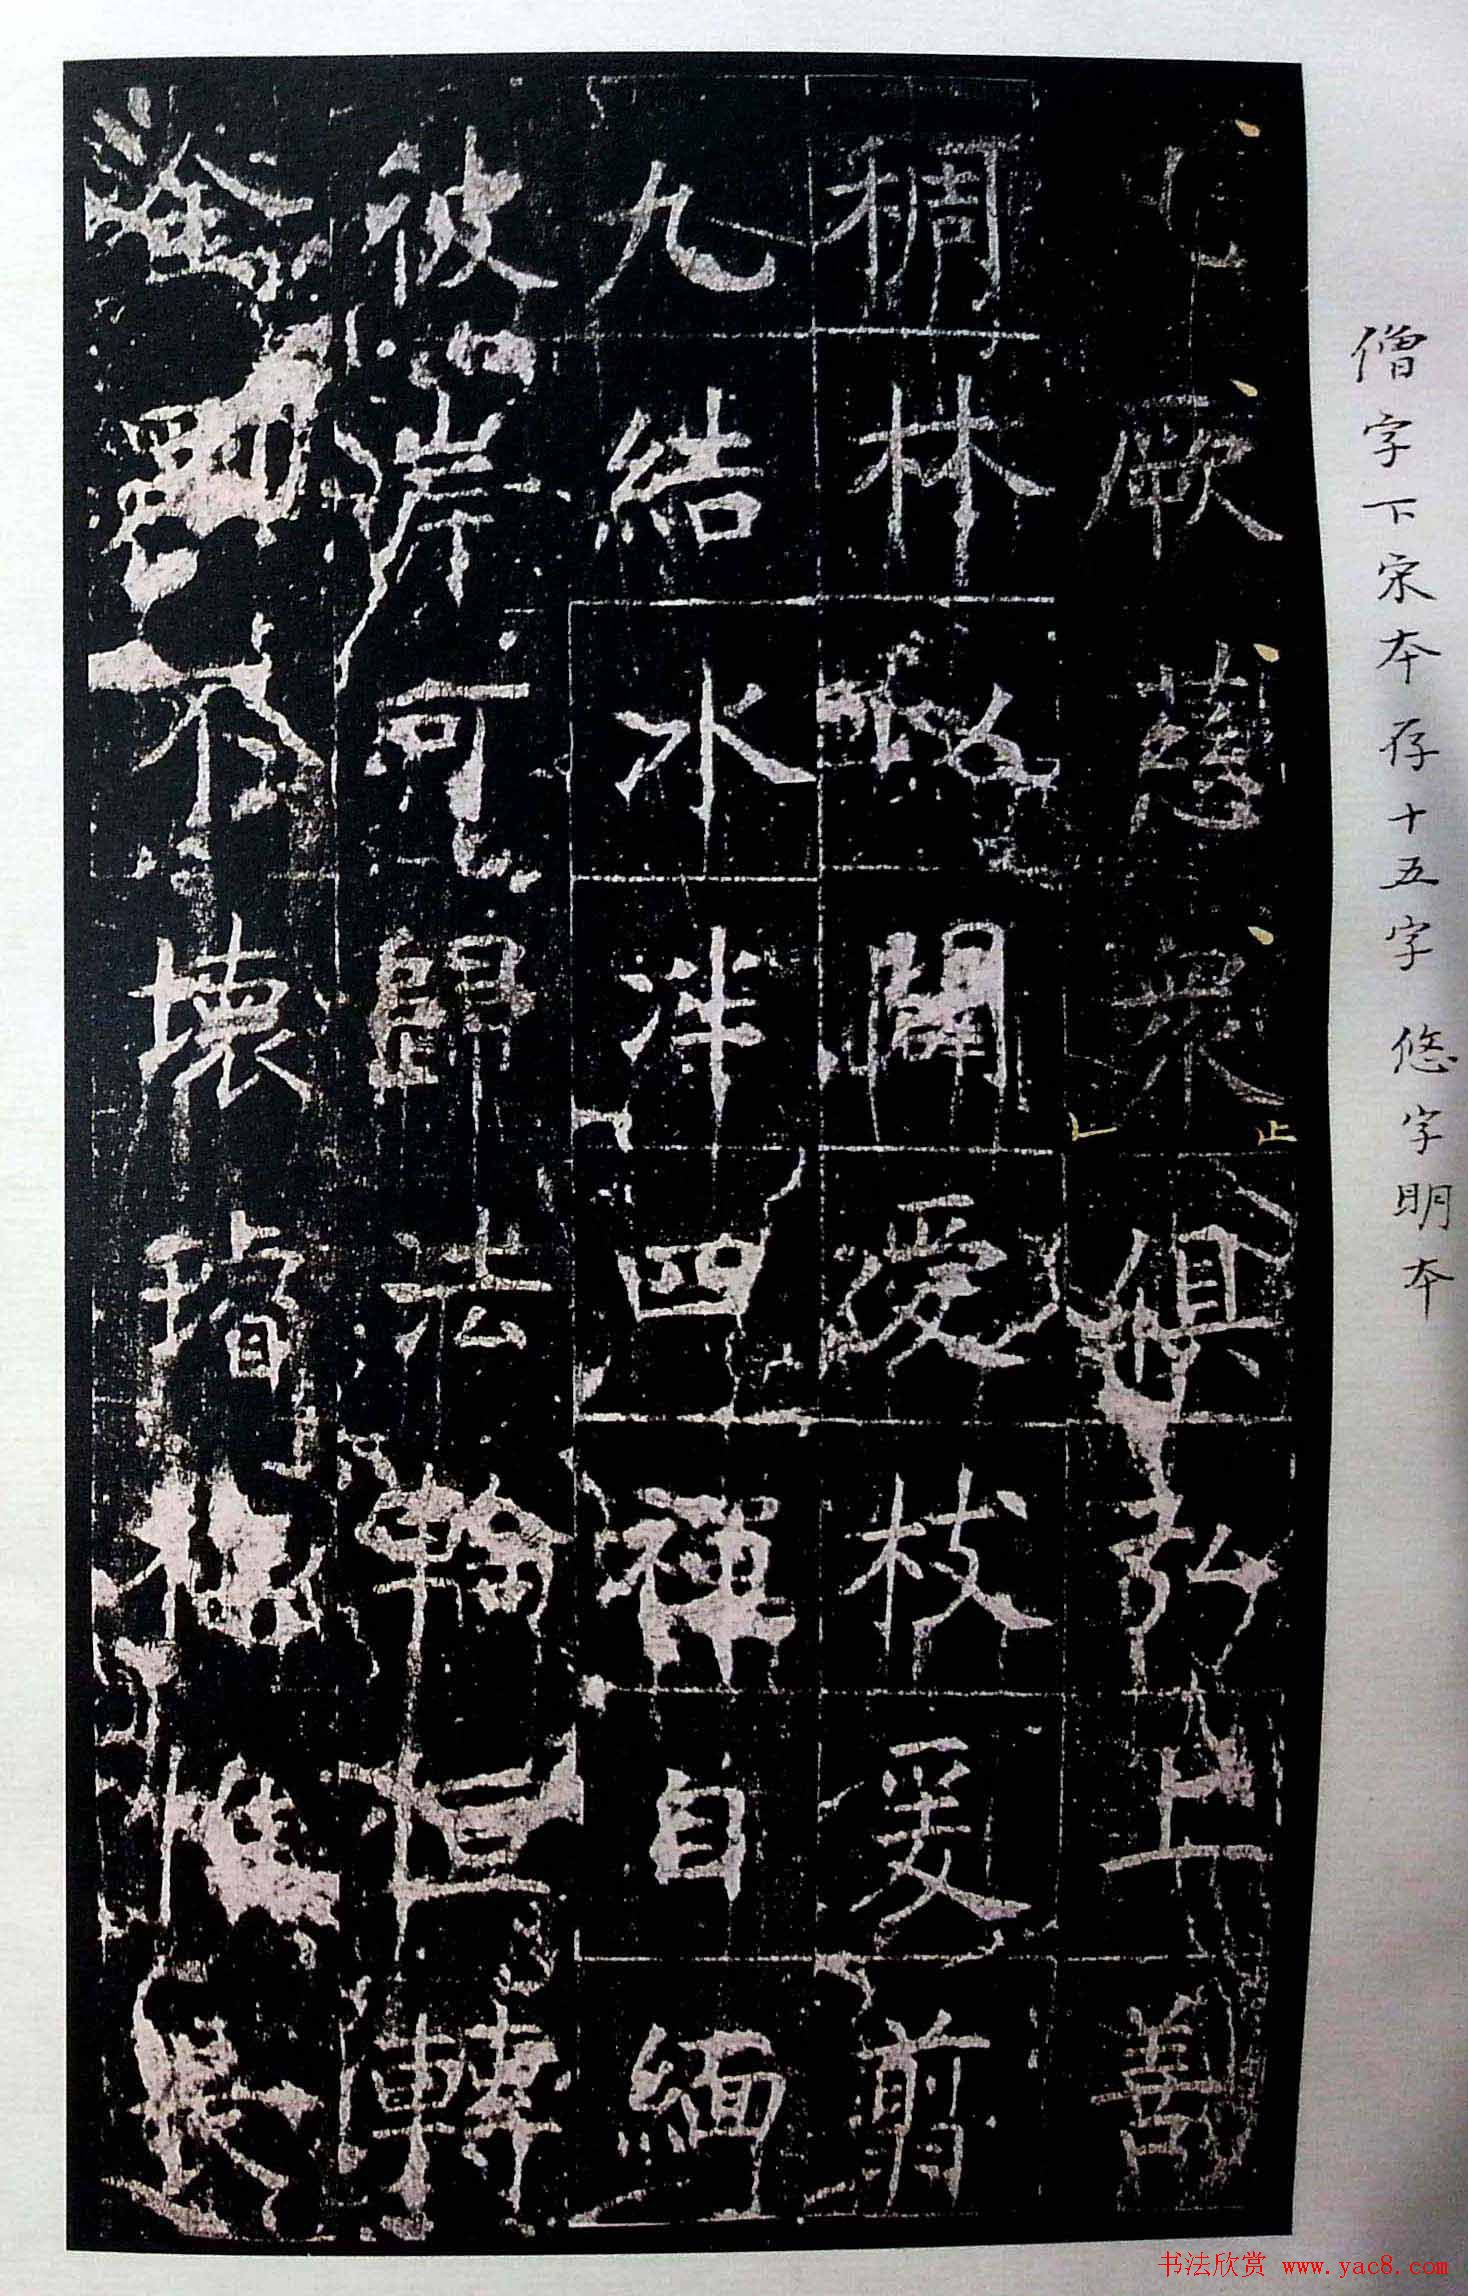 僧字下宋本存十五字悠字明本
厥慈衆俱弘上善
稠林開愛枝爰剪
九結水泮四禪自緬
彼岸可歸法輪恒轉
金剛不壞璿惟
书法欣赏 www.yac8.com